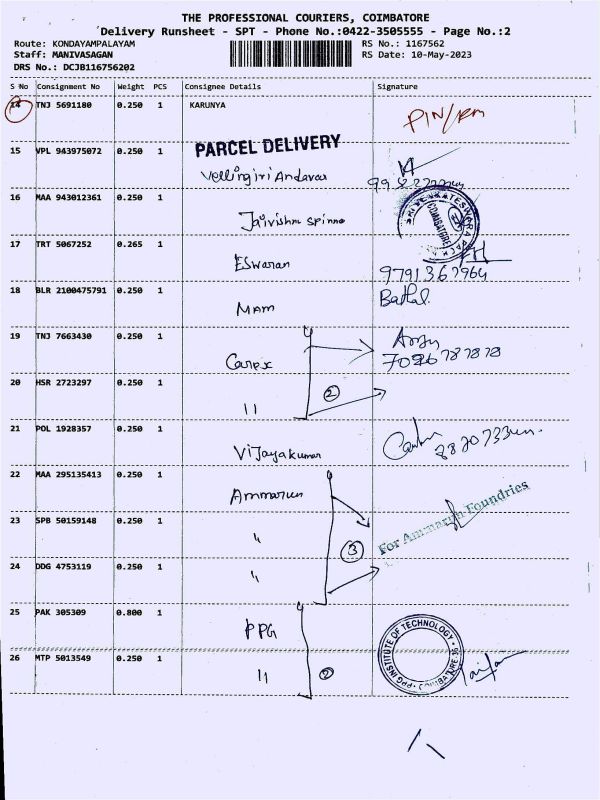 THE PROFESSIONAL COURIERS, COIMBATORE
Delivery Runsheet - SPT - Phone No.:0422-3505555 - Page No.:2
Route: KONDAYAMPALAYAM RS No.: 1167562
Staff: MANIVASAGAN RS Date: 10-May-2023
DRS No.: DCJB116756202
S No Consignment No Weight PCS Consignee Details Signature
14 TNJ 5691180 0.250 1 KARUNYA
PARCEL DELIVERY
15 VPL 943975072 0.250 1 Vellingiri Andavar
16 MAA 943012361 0.250 1 Jaivishnu Spinne
COIMBATORE
17 TRT 5067252 0.265 1 Eswaran
9791367964
18 BLR 2100475791 0.250 1 MAM
19 TNJ 7663430 0.250 1 Carex
7026787878
20 HSR 2723297 0.250 1 11 2
21 POL 1928357 0.250 1 Vijayakumar
22 MAA 295135413 0.250 1 Ammarun
For Ammarun Foundries
23 SPB 50159148 0.250 1 "
3
24 DDG 4753119 0.250 1 "
25 PAK 305309 0.800 1 PPG
PPG INSTITUTE OF TECHNOLOGY
26 MTP 5013549 0.250 1 11 2